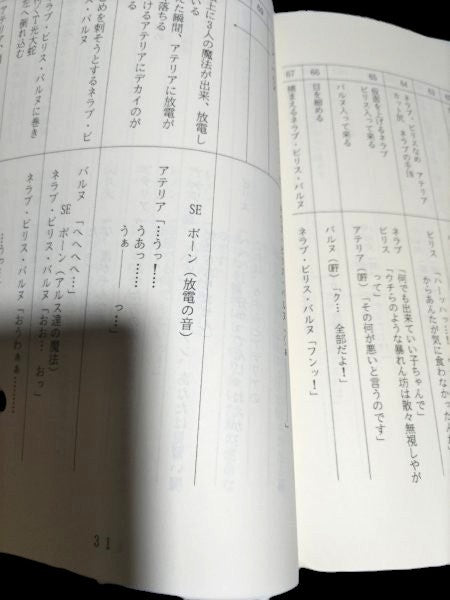 67
66
65
64
捕まえるネラブ・ビリス・バルヌ
目を細める
バルヌ入って来る
ビリス入って来る
仮面を上げるネラブ
カット尻 ネラブの手IN
ネラブ、ビリスなめ アテリア
ビリス「ハーッハッ…!
からあんたが気に食わなかったんだ
ネラブ「何でも出来ていい子ちゃんで」
ビリス「ウチらのような暴れん坊は散々無視しやが
って」
アテリア(吁)「その何が悪いと言うのです」
バルヌ(吁)「ク… 全部だよ!」
ネラブ・ビリス・バルヌ「フンッ!」
士に3人の魔法が出来、放電し
いる
た瞬間、アテリアに放電が
落ちる
けるアテリアにデカイのが
めを刺そうとするネラブ・ビ
・バルヌ
ネラブ・ビリス・バルヌに巻き
SE ボーン(放電の音)
アテリア「…うっ!…
うあっ……
うぁ――
っ…」
バルヌ「へへへへ…」
SE ボーン(アルス達の魔法)
ネラブ・ビリス・バルヌ「おお… おっ」
ネラブ・ビリス・バルヌ「おうわぁぁ………
…うっ…
31